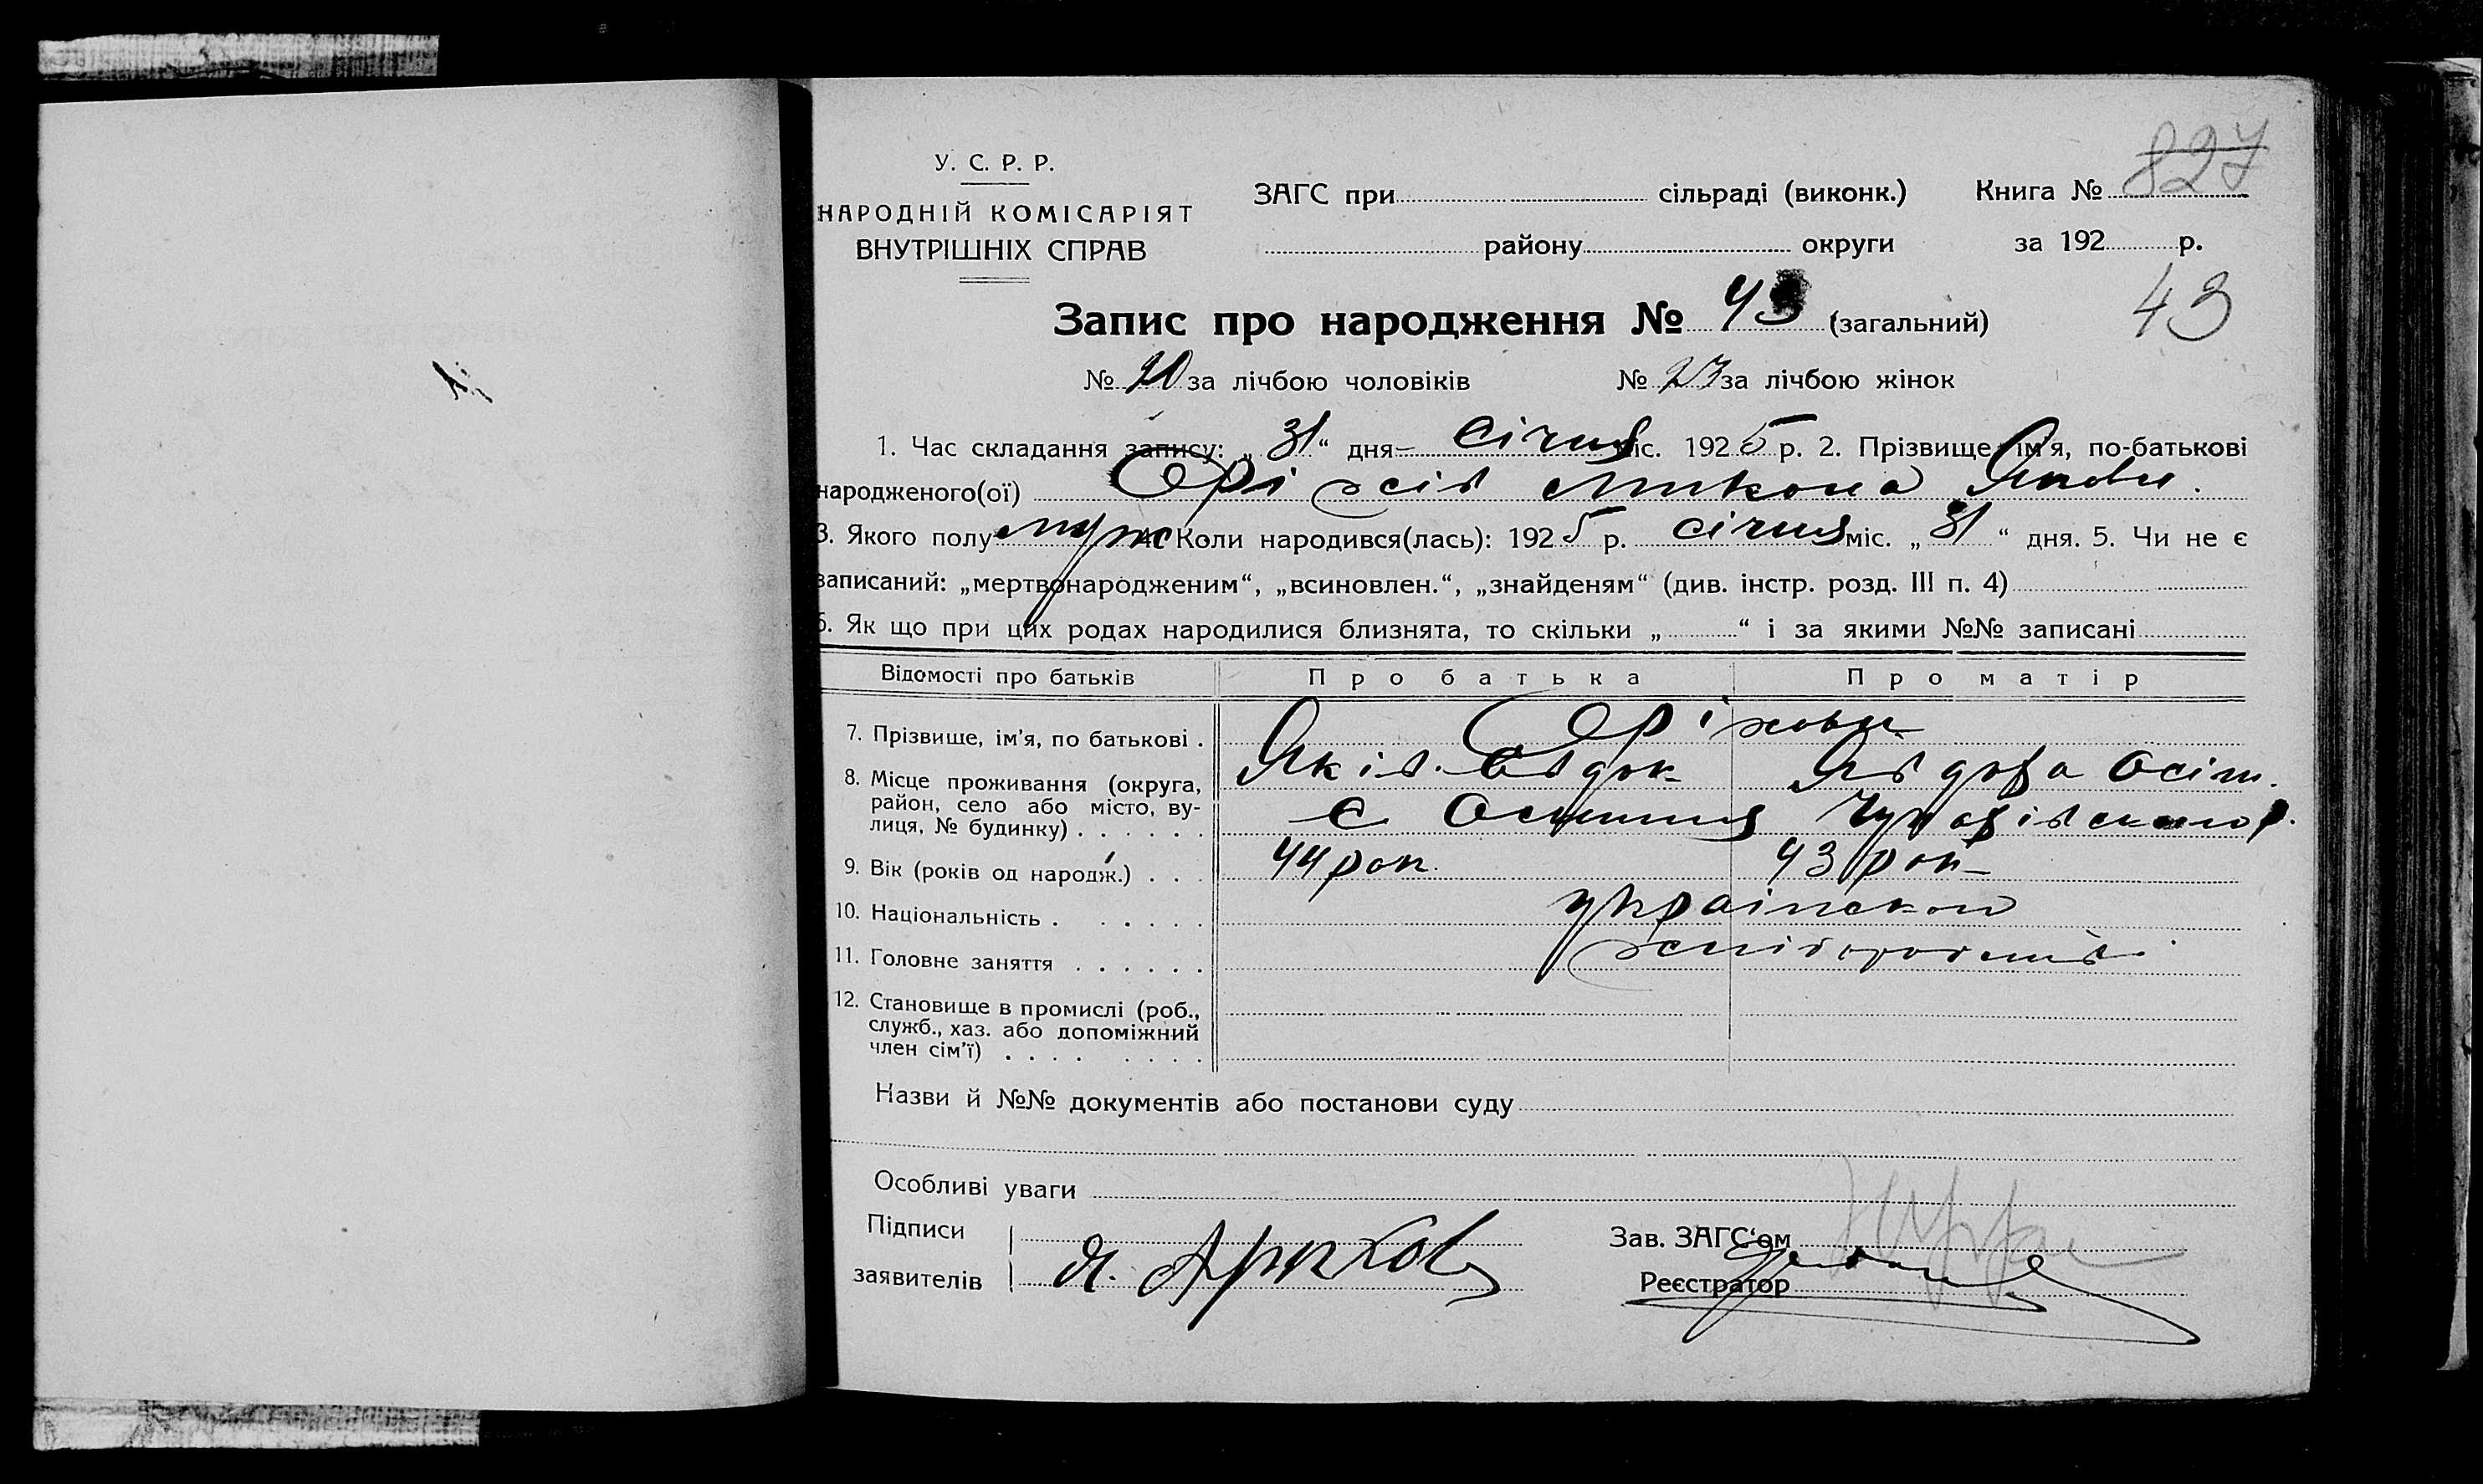 827
У. С. Р. Р.
НАРОДНІЙ КОМІСАРІЯТ
ВНУТРІШНІХ СПРАВ
ЗАГС при сільраді (виконк.) Книга №
району округи за 192 р.
Запис про народження № 43 (загальний) 43
№ 20 за лічбою чоловіків № 23 за лічбою жінок
1. Час складання запису: „ 31 “ дня січня міс. 1925 р. 2. Прізвище, ім'я, по-батькові
народженого(ої) Оріхів Микола Яковл.
3. Якого полу муж 4. Коли народився(лась): 1925 р. січня міс. „ 31 “ дня. 5. Чи не є
записаний: „мертвонародженим“, „всиновлен.“, „знайденям“ (див. інстр. розд. III п. 4)
6. Як що при цих родах народилися близнята, то скільки „ “ і за якими №№ записані
Відомості про батьків Про батька Про матір
7. Прізвище, ім'я, по батькові . Оріхови
Яків Явдоха Осіп.
8. Місце проживання (округа,
район, село або місто, ву-
лиця, № будинку) . . . . . . с.
9. Вік (років од народж.) . . . 44 рок. 43 рок
10. Національність . . . . . українскои
11. Головне заняття . . . . . . хліборобств.
12. Становище в промислі (роб.,
служб., хаз. або допоміжний
член сім'ї) . . . . . . . .
Назви й №№ документів або постанови суду
Особливі уваги
Підписи
заявителів Я. Арихов
Зав. ЗАГС'ом
Реєстратор